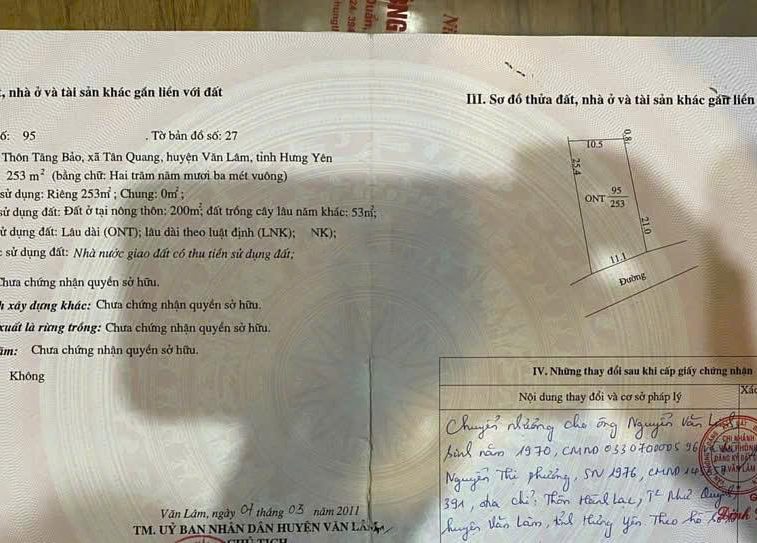 , nhà ở và tài sản khác gắn liền với đất
ố: 95 . Tờ bản đồ số: 27
Thôn Tăng Bảo, xã Tân Quang, huyện Văn Lâm, tỉnh Hưng Yên
253 m² (bằng chữ: Hai trăm năm mươi ba mét vuông)
sử dụng: Riêng 253m²; Chung: 0m²;
sử dụng đất: Đất ở tại nông thôn: 200m²; đất trồng cây lâu năm khác: 53m²;
ử dụng đất: Lâu dài (ONT); lâu dài theo luật định (LNK); NK);
sử dụng đất: Nhà nước giao đất có thu tiền sử dụng đất;
Chưa chứng nhận quyền sở hữu.
h xây dựng khác: Chưa chứng nhận quyền sở hữu.
xuất là rừng trồng: Chưa chứng nhận quyền sở hữu.
ăm: Chưa chứng nhận quyền sở hữu.
Không
Văn Lâm, ngày 01 tháng 03 năm 2011
TM. UỶ BAN NHÂN DÂN HUYỆN VĂN LÂM
CHỦ TỊCH
III. Sơ đồ thửa đất, nhà ở và tài sản khác gắn liền
10.5
0.8
25.4
ONT 95
253
21.0
11.1
Đường
IV. Những thay đổi sau khi cấp giấy chứng nhận
Nội dung thay đổi và cơ sở pháp lý
Xác
Chuyển nhượng cho ông Nguyễn Văn
Sinh năm 1970, CMND 033070000596
Nguyễn Thị Phường, SN 1976, CMND
391, địa chỉ: Thôn Hành Lạc, TT Như Quỳnh
huyện Văn Lâm, tỉnh Hưng Yên Theo hồ sơ
CHI NHÁNH
VĂN PHÒNG
ĐĂNG KÝ ĐẤT
VĂN LÂM